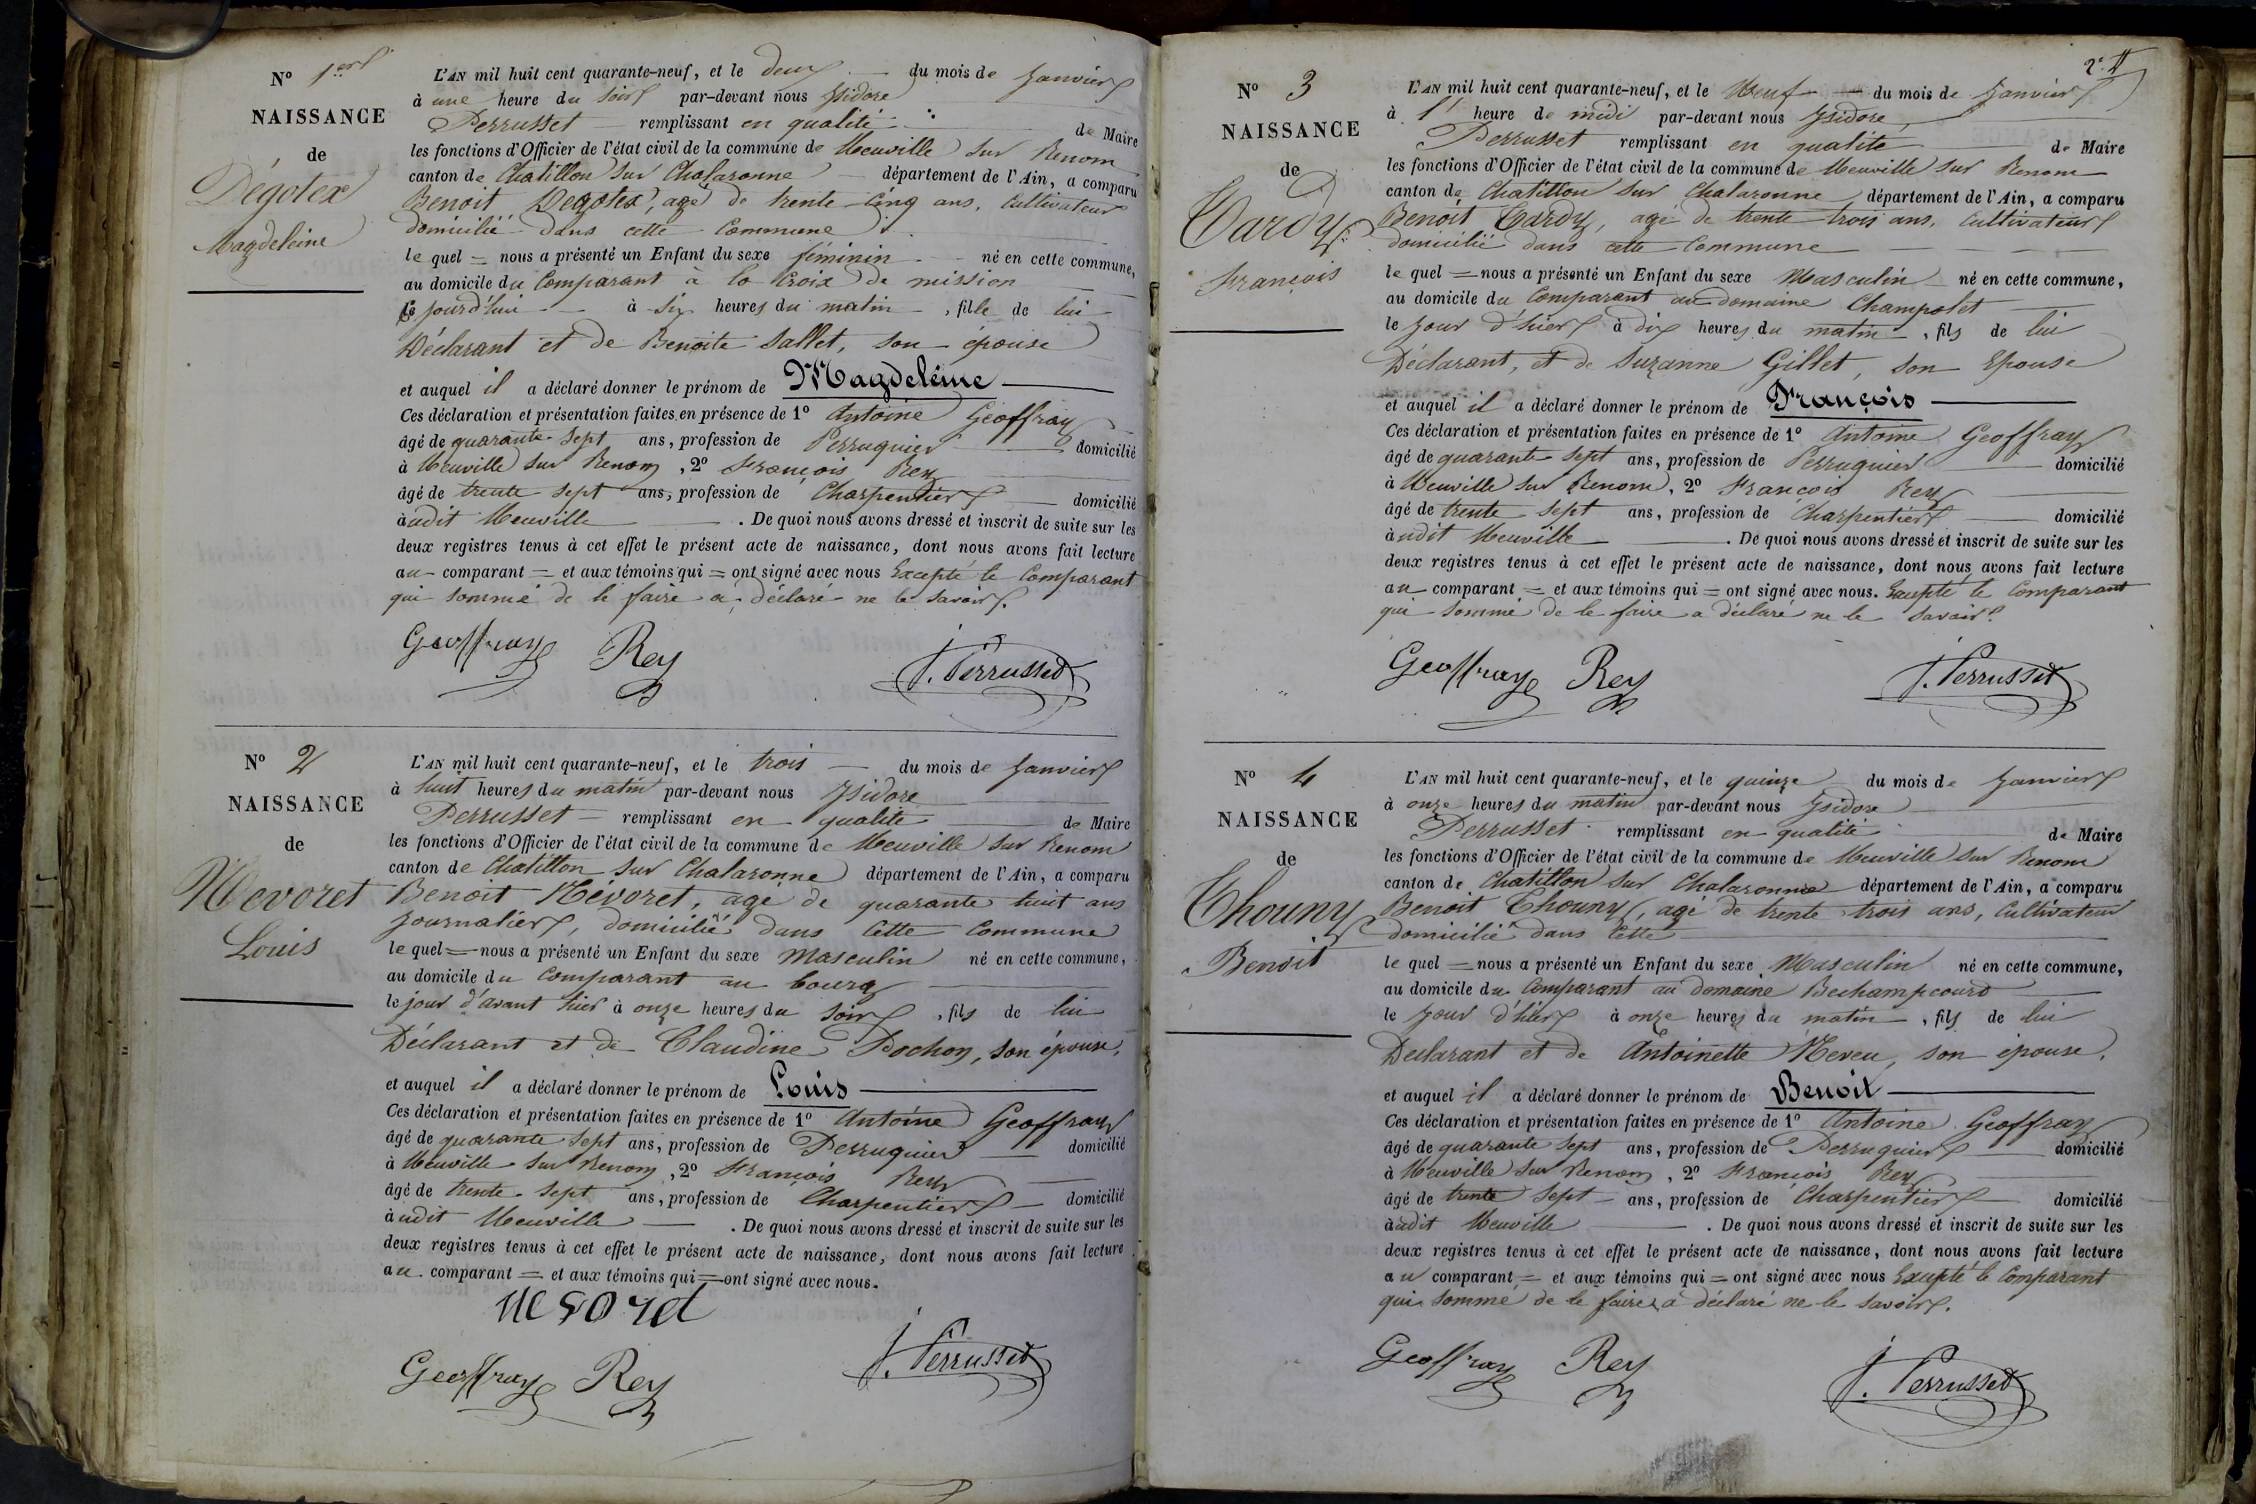 N° 1er
NAISSANCE
de
Dégotex
Magdeleine
L'AN mil huit cent quarante-neuf, et le deux du mois de Janvier
à une heure du soir par-devant nous Isidore
Perrusset remplissant en qualité de Maire
les fonctions d'Officier de l'état civil de la commune de Neuville sur Renom
canton de Chatillon sur Chalaronne département de l'Ain, a comparu
Benoit Dégotex, agé de trente cinq ans, cultivateur
domicilié dans cette Commune
le quel = nous a présenté un Enfant du sexe féminin né en cette commune,
au domicile du Comparant à la Croix de mission
ce jourd'hui à six heures du matin, fille de lui
Déclarant et de Benoite Sallet, son épouse
et auquel il a déclaré donner le prénom de Magdeleine
Ces déclaration et présentation faites en présence de 1° Antoine Geoffray
âgé de quarante sept ans, profession de Perruquier domicilié
à Neuville sur Renom, 2° François Rey
âgé de trente sept ans, profession de Charpentier domicilié
audit Neuville. De quoi nous avons dressé et inscrit de suite sur les
deux registres tenus à cet effet le présent acte de naissance, dont nous avons fait lecture
au comparant = et aux témoins qui = ont signé avec nous Excepté le Comparant
qui sommé de le faire a déclaré ne le savoir.
Geoffray Rey J. Perrusset
N° 2
NAISSANCE
de
Nevoret
Louis
L'AN mil huit cent quarante-neuf, et le trois du mois de Janvier
à huit heures du matin par-devant nous Isidore
Perrusset remplissant en qualité de Maire
les fonctions d'Officier de l'état civil de la commune de Neuville sur Renom
canton de Chatillon sur Chalaronne département de l'Ain, a comparu
Benoit Névoret, agé de quarante huit ans
journalier, domicilié dans cette Commune
le quel = nous a présenté un Enfant du sexe Masculin né en cette commune,
au domicile du Comparant au bourg
le jour d'avant hier à onze heures du soir, fils de lui
Déclarant et de Claudine Pochon, son épouse.
et auquel il a déclaré donner le prénom de Louis
Ces déclaration et présentation faites en présence de 1° Antoine Geoffray
âgé de quarante sept ans, profession de Perruquier domicilié
à Neuville sur Renom, 2° François Rey
âgé de trente sept ans, profession de Charpentier domicilié
audit Neuville. De quoi nous avons dressé et inscrit de suite sur les
deux registres tenus à cet effet le présent acte de naissance, dont nous avons fait lecture
au comparant = et aux témoins qui = ont signé avec nous.
nevoret
Geoffray Rey J. Perrusset
N° 3
NAISSANCE
de
Tardy
François
L'AN mil huit cent quarante-neuf, et le Neuf du mois de Janvier
à l' heure de midi par-devant nous Isidore
Perrusset remplissant en qualité de Maire
les fonctions d'Officier de l'état civil de la commune de Neuville sur Renom
canton de Chatillon sur Chalaronne département de l'Ain, a comparu
Benoit Tardy, agé de trente trois ans, cultivateur
domicilié dans cette Commune
le quel = nous a présenté un Enfant du sexe Masculin né en cette commune,
au domicile du Comparant au domaine Champolet
le jour d'hier à dix heures du matin, fils de lui
Déclarant, et de Suzanne Gillet, son Epouse
et auquel il a déclaré donner le prénom de François
Ces déclaration et présentation faites en présence de 1° Antoine Geoffray
âgé de quarante sept ans, profession de Perruquier domicilié
à Neuville sur Renom, 2° François Rey
âgé de trente sept ans, profession de Charpentier domicilié
audit Neuville. De quoi nous avons dressé et inscrit de suite sur les
deux registres tenus à cet effet le présent acte de naissance, dont nous avons fait lecture
au comparant = et aux témoins qui = ont signé avec nous. Excepté le Comparant
qui sommé de le faire a déclaré ne le savoir.
Geoffray Rey J. Perrusset
N° 4
NAISSANCE
de
Chouny
Benoit
L'AN mil huit cent quarante-neuf, et le quinze du mois de Janvier
à onze heures du matin par-devant nous Isidore
Perrusset remplissant en qualité de Maire
les fonctions d'Officier de l'état civil de la commune de Neuville sur Renom
canton de Chatillon sur Chalaronne département de l'Ain, a comparu
Benoit Chouny, agé de trente trois ans, Cultivateur
domicilié dans cette
le quel = nous a présenté un Enfant du sexe Masculin né en cette commune,
au domicile du Comparant au domaine Bechampcourt
le jour d'hier à onze heures du matin, fils de lui
Déclarant et de Antoinette Neveu, son epouse.
et auquel il a déclaré donner le prénom de Benoit
Ces déclaration et présentation faites en présence de 1° Antoine Geoffray
âgé de quarante sept ans, profession de Perruquier domicilié
à Neuville sur Renom, 2° François Rey
âgé de trente sept ans, profession de Charpentier domicilié
audit Neuville. De quoi nous avons dressé et inscrit de suite sur les
deux registres tenus à cet effet le présent acte de naissance, dont nous avons fait lecture
au comparant = et aux témoins qui = ont signé avec nous Excepté le Comparant
qui sommé de le faire a déclaré ne le savoir.
Geoffray Rey J. Perrusset